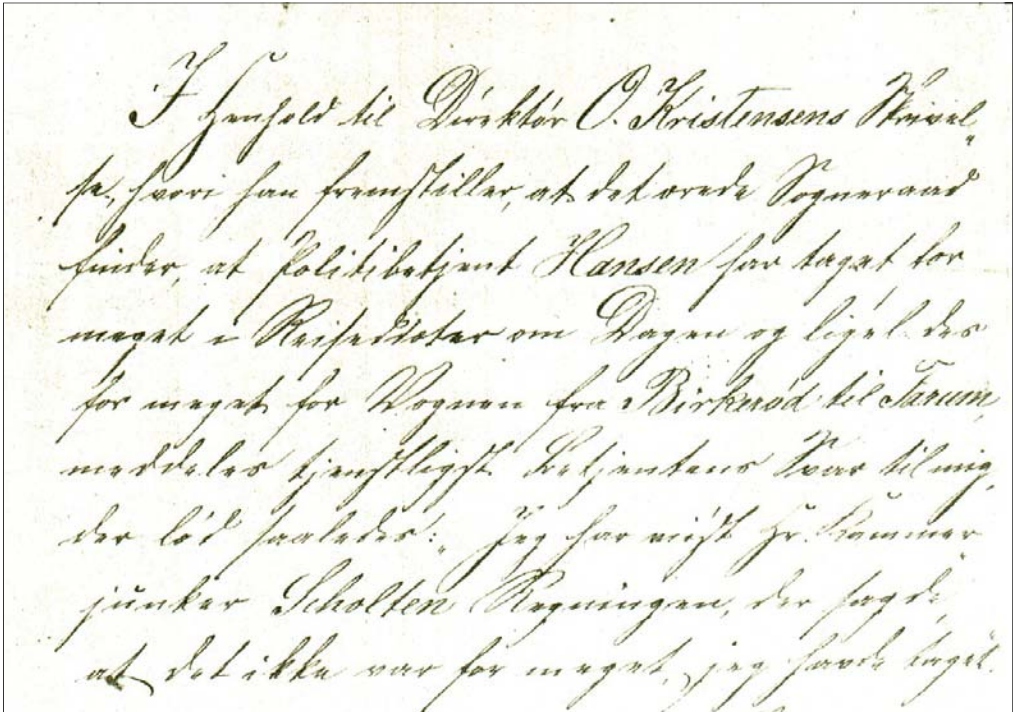 I Henhold til Direktør O. Kristensens Skrivel„
se, hvori han fremstiller, at det ærede Sogneraad
finder, at Politibetjent Hansen har taget for
meget i Reisediæter om Dagen og ligeledes
for meget for Vognen fra Birkerød til Farum,
meddeles tjenstligst Betjentens Svar til mig,
der lød saaledes: „Jeg har viist Hr. Kammer„
junker Scholten Regningen, der sagde,
at det ikke var for meget, jeg havde taget.